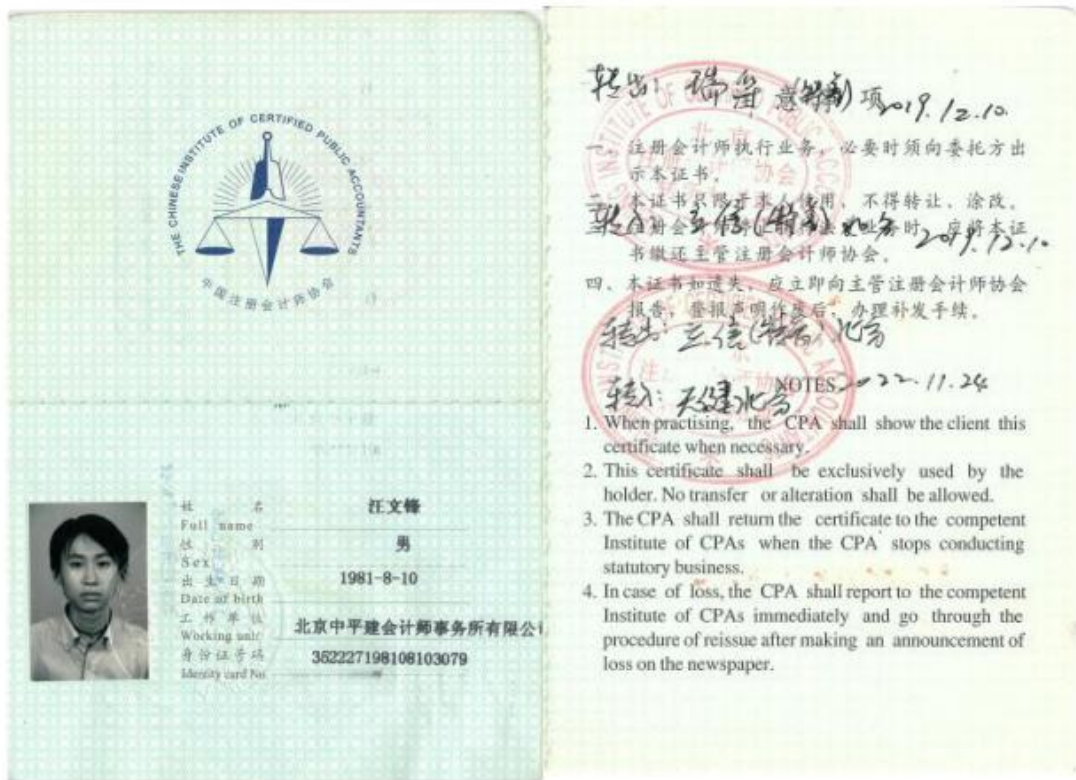 THE CHINESE INSTITUTE OF CERTIFIED PUBLIC ACCOUNTANTS
中国注册会计师协会
姓 名
Full name
汪文锋
性 别
Sex
男
出生日期
Date of birth
1981-8-10
工作单位
Working unit
北京中平建会计师事务所有限公
身份证号码
Identity card No.
352227198108103079
转出: 瑞华 (特普) 2019.12.10.
意 项
一、注册会计师执行业务，必要时须向委托方出
示本证书。
二、本证书只限于本人使用，不得转让、涂改。
转入: 立信(特普) 2019.12.10
业务时，应将本证
书缴还主管注册会计师协会。
四、本证书如遗失，应立即向主管注册会计师协会
报告，登报声明作废后，办理补发手续。
转出: 立信(特普)北京
NOTES 2022.11.24
转入: 天健北京
1. When practising, the CPA shall show the client this
certificate when necessary.
2. This certificate shall be exclusively used by the
holder. No transfer or alteration shall be allowed.
3. The CPA shall return the certificate to the competent
Institute of CPAs when the CPA stops conducting
statutory business.
4. In case of loss, the CPA shall report to the competent
Institute of CPAs immediately and go through the
procedure of reissue after making an announcement of
loss on the newspaper.